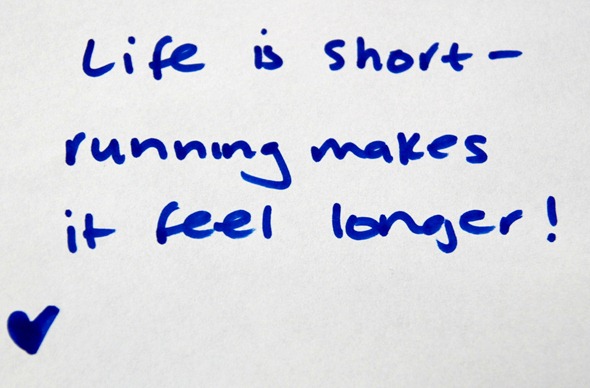 Life is short-
running makes
it feel longer!